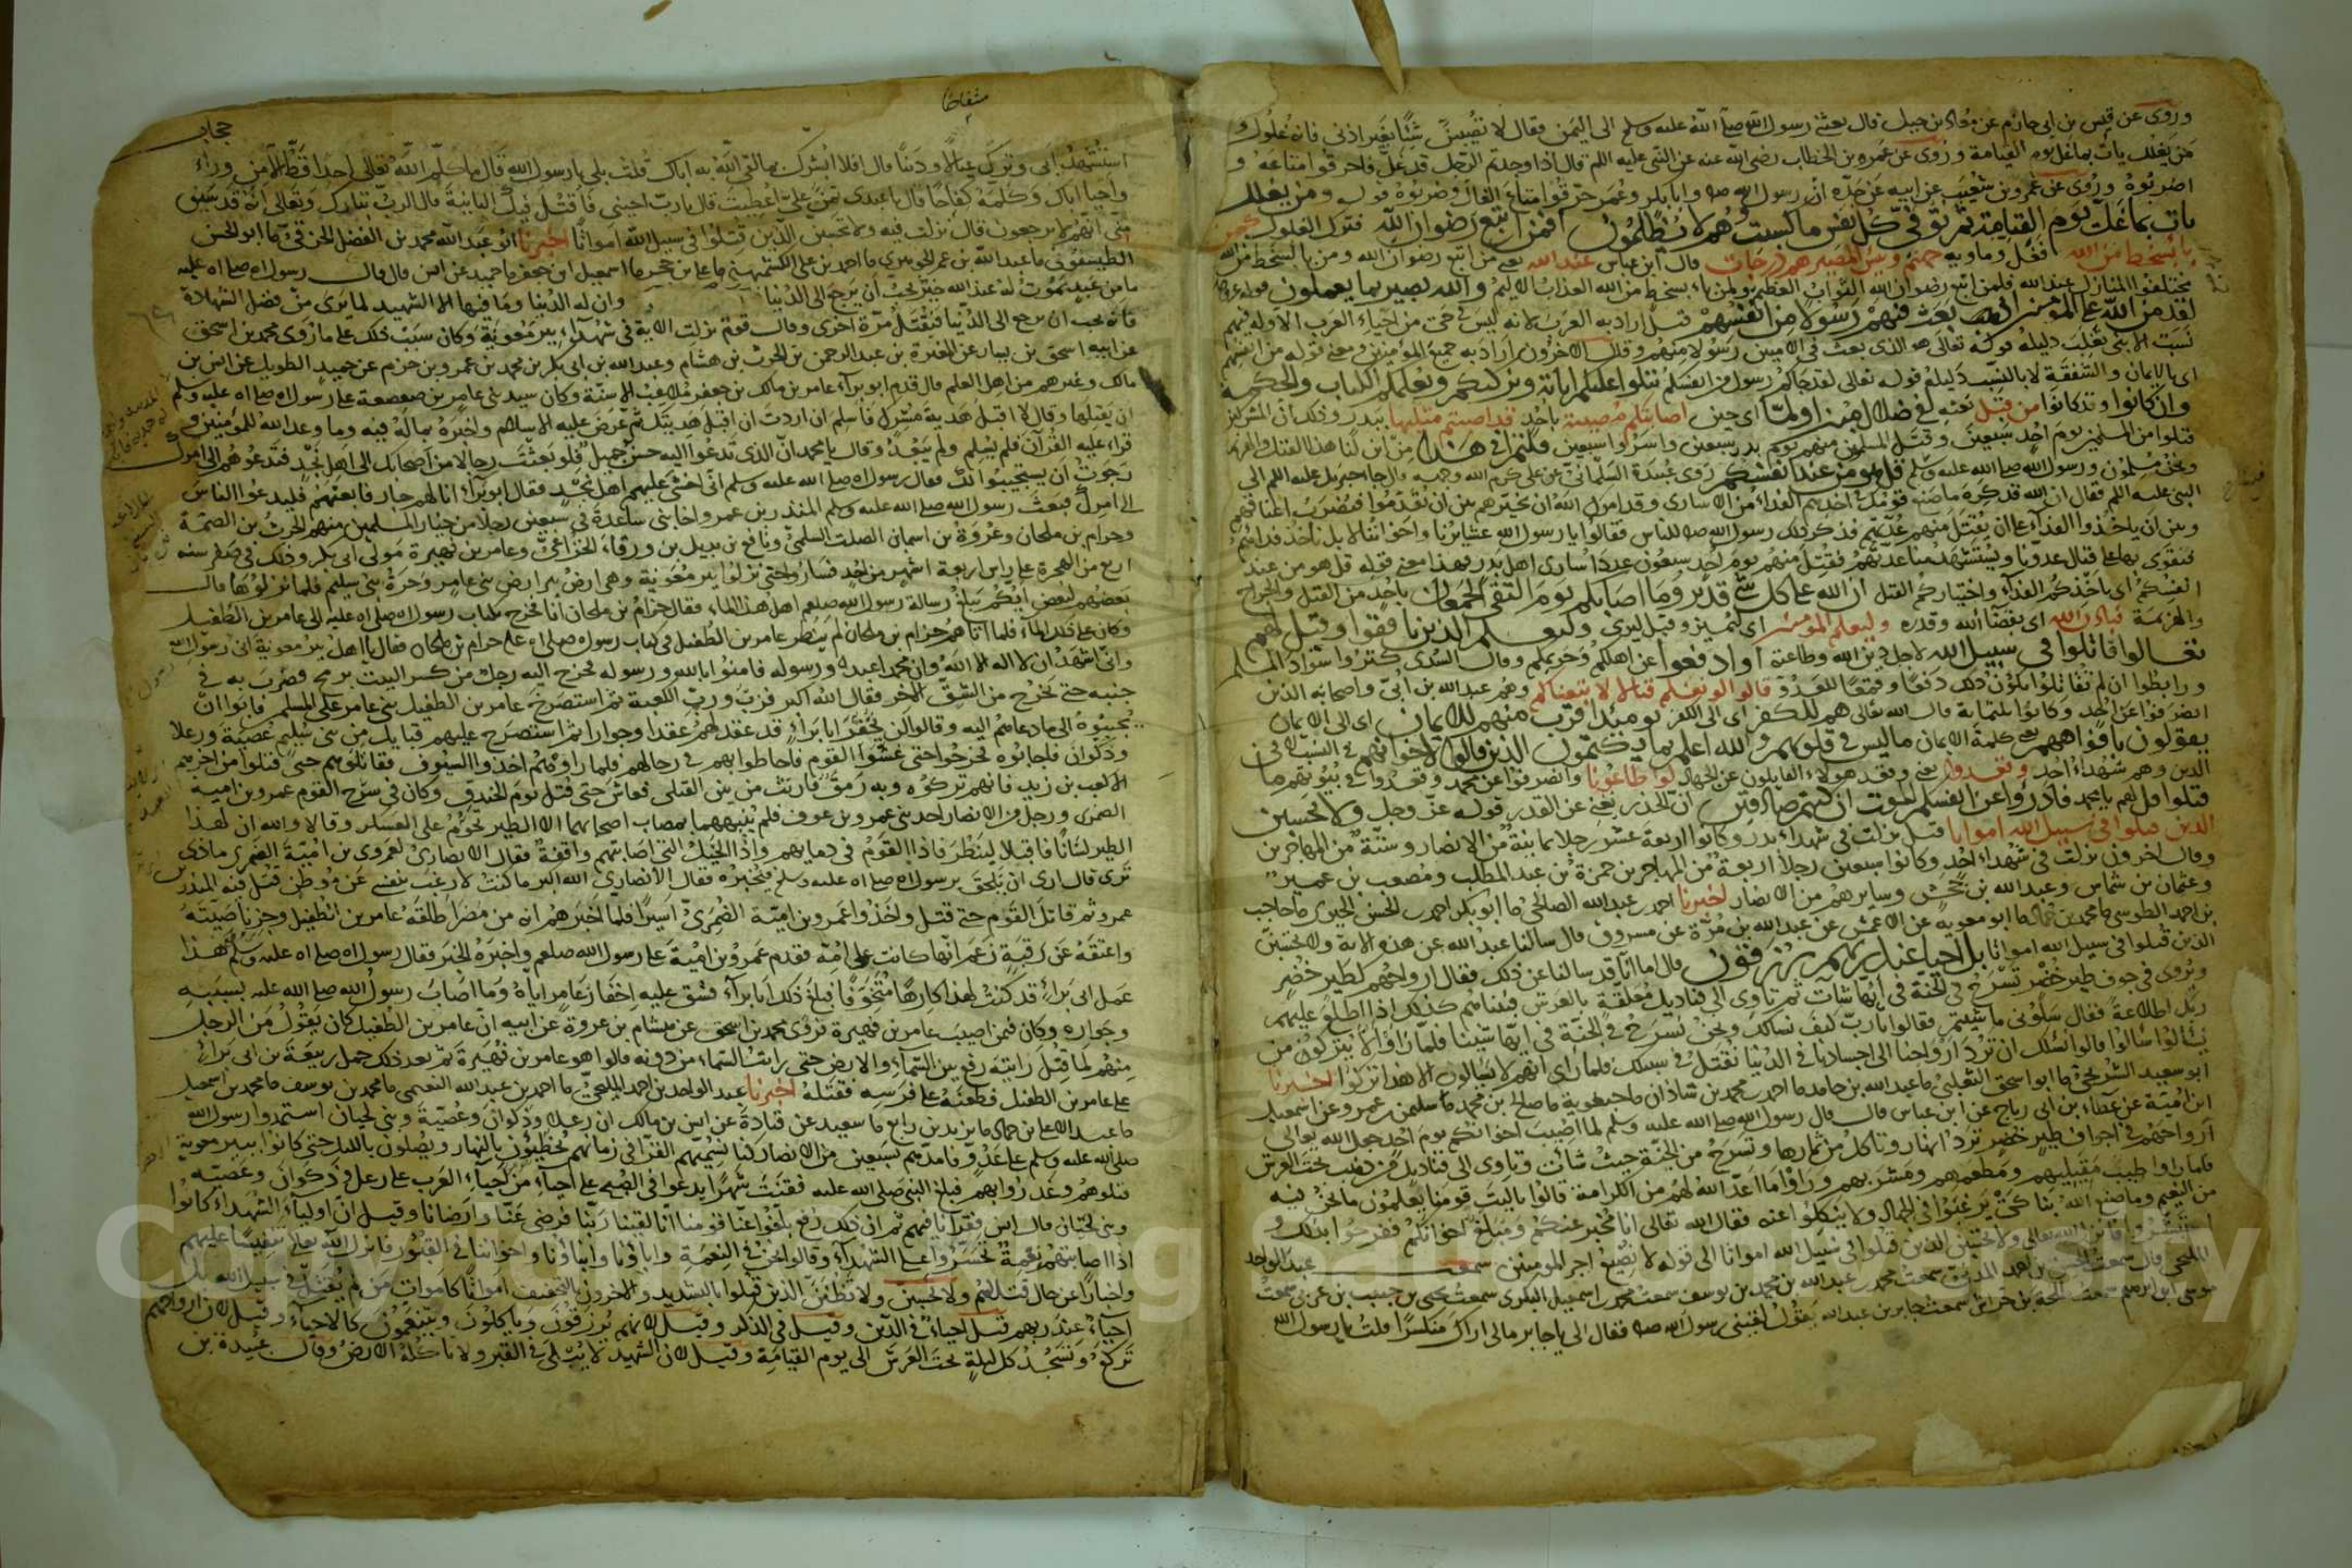 وروى عن قيس بن ابى حازم عن معاذ بن جبل قال بعثنى رسول الله صلى الله عليه وسلم الى اليمن فقال لا تصيبن شيئا بغير اذنى فانه غلول و
من يغلل يات بما غل يوم القيامة وروى عن عمر بن الخطاب رضى الله عنه عن النبى عليه اللم قال اذا وجدتم الرجل قد غل فاحرقوا متاعه و
اضربوه وروى عن عمرو بن شعيب عن ابيه عن جده ان رسول الله صلم وابا بكر وعمر حرقوا متاع الغال وضربوه قوله ومن يغلل
يات بما غل يوم القيامة ثم توفى كل نفس ما كسبت وهم لا يظلمون افمن اتبع رضوان الله فترك الغلول كمن
باء بسخط من الله فغل وماويه جهنم وبئس المصير هم درجات قال ابن عباس عند الله يعنى من اتبع رضوان الله ومن باء بسخط من الله
مختلفوا المنازل عند الله فلمن اتبع رضوان الله الثواب العظيم ولمن باء بسخط من الله العذاب الاليم والله بصير بما يعملون قوله عز وجل
لقد من الله على المؤمنين اذ بعث فيهم رسولا من انفسهم قيل اراد به العرب لانه ليس فى حى من احياء العرب الا وله فيهم
نسب الا بنى تغلب دليله قوله تعالى هو الذى بعث فى الاميين رسولا منهم وقال الاخرون اراد به جميع المؤمنين ومعنى قوله من انفسهم
اى بالايمان والشفقة لا بالنسب دليله قوله تعالى لقد جاءكم رسول من انفسكم يتلوا عليهم اياته ويزكيهم ويعلمهم الكتاب والحكمة
وان كانوا وقد كانوا من قبل بعثه لفى ضلال مبين اولما اى حين اصابتكم مصيبة باحد قد اصبتم مثليها ببدر وذلك ان المشركين
قتلوا من المسلمين يوم احد سبعين وقتل المسلمون منهم يوم بدر سبعين واسروا سبعين قلتم انى هذا من اين لنا هذا القتل والهزيمة
ونحن مسلمون ورسول الله صلى الله عليه وسلم قل هو من عند انفسكم روى عبيدة السلمانى عن على كرم الله وجهه قال جاء جبريل عليه اللم الى
النبى عليه اللم فقال ان الله قد كره ما صنع قومك فى اخذهم الفداء من الاسارى وقد امرك الله ان تخيرهم بين ان يقدموا فتضرب اعناقهم
وبين ان ياخذوا الفداء على ان يقتل منهم عدتهم فذكر ذلك رسول الله صلم للناس فقالوا يا رسول الله عشايرنا واخواننا لا بل ناخذ فداهم
فنقوى بها على قتال عدونا ويستشهد منا عدتهم فقتل منهم يوم احد سبعون عدد اسارى اهل بدر فهذا معنى قوله قل هو من عند
انفسكم اى باخذكم الفداء واختياركم القتل ان الله على كل شىء قدير وما اصابكم يوم التقى الجمعان باحد من القتل والجراح
والهزيمة فباذن الله اى بقضاء الله وقدره وليعلم المؤمنين اى ليميز وقيل ليرى وليعلم الذين نافقوا وقيل لهم
تعالوا قاتلوا فى سبيل الله لاجل دين الله وطاعته اوادفعوا عن اهلكم وحريمكم وقال السدى كثروا سواد المسلمين
ورابطوا ان لم تقاتلوا يكون ذلك دفعا وقمعا للعدو قالوا لو نعلم قتالا لاتبعناكم وهم عبدالله بن ابى واصحابه الذين
انصرفوا عن احد وكانوا ثلثماية قال الله تعالى هم للكفر اى الى الكفر يومئذ اقرب منهم للايمان اى الى الايمان
يقولون بافواههم يعنى كلمة الايمان ما ليس فى قلوبهم والله اعلم بما يكتمون الذين قالوا لاخوانهم فى النسب لا فى
الدين وهم شهداء احد وقعدوا يعنى وقعد هولاء القايلون عن الجهاد لو اطاعونا وانصرفوا عن محمد وقعدوا فى بيوتهم ما
قتلوا قل لهم يا محمد فادرؤا عن انفسكم الموت ان كنتم صادقين ان الحذر يغنى عن القدر قوله عز وجل ولا تحسبن
الذين قتلوا فى سبيل الله امواتا قيل نزلت فى شهداء بدر وكانوا اربعة عشر رجلا ثمانية من الانصار وستة من المهاجرين
وقال اخرون نزلت فى شهداء احد وكانوا سبعين رجلا اربعة من المهاجرين حمزة بن عبد المطلب ومصعب بن عمير
وعثمان بن شماس وعبد الله بن جحش وسايرهم من الانصار اخبرنا احمد بن عبدالله الصالحى ما ابو بكر احمد بن الحسن الحيرى ما حاجب
بن احمد الطوسى ما محمد بن حماد ما ابو معوية عن الاعمش عن عبد الله بن مرة عن مسروق قال سالنا عبد الله عن هذه الاية ولا تحسبن
الذين قتلوا فى سبيل الله امواتا بل احياء عند ربهم يرزقون قال اما انا قد سالنا عن ذلك فقال ارواحهم كطير خضر
ويروى فى جوف طير خضر تسرح فى الجنة فى ايها شات ثم تاوى الى قناديل معلقة بالعرش فبينا هم كذلك اذ اطلع عليهم
ربك اطلاعة فقال سلونى ما شيتم فقالوا يا رب كيف نسالك ونحن نسرح فى الجنة فى ايها شينا فلما راوا الا يتركون من
يسالوا سالوا قالوا نسئلك ان ترد ارواحنا الى اجسادنا فى الدنيا نقتل فى سبيلك فلما راى انهم لا يسالون الا هذا تركوا اخبرنا
ابو سعيد الشريحى ما ابو اسحق الثعلبى ما عبدالله بن حامد ما احمد بن محمد بن شاذان ما جيعوية ما صالح بن محمد ما سليمن بن عمرو عن اسمعيل
ابن امية عن عطاء بن ابى رباح عن ابن عباس قال قال رسول الله صلى الله عليه وسلم لما اصيب اخوانكم يوم احد جعل الله تعالى
ارواحهم فى اجواف طير خضر ترد انهار وتاكل من ثمارها وتسرح من الجنة حيث شات وتاوى الى قناديل من ذهب تحت العرش
فلما راوا طيب مقيلهم ومطعمهم ومشربهم وراوا ما اعد الله لهم من الكرامة قالوا يا ليت قومنا يعلمون ما نحن فيه
من النعيم وما صنع الله بنا كى يرغبوا فى الجهاد ولا ينكلوا عنه فقال الله تعالى انا مخبر عنكم ومبلغ اخوانكم ففرحوا بذلك و
استبشروا فانزل الله تعالى ولا تحسبن الذين قتلوا فى سبيل الله امواتا الى قوله لا يضيع اجر المومنين سمعت عبد الواحد
المليحى قال سمعت الحسن بن احمد سمعت محمد بن عبد الله بن محمد بن يوسف سمعت محمد بن اسمعيل البكرى سمعت يحيى بن حبيب بن عربى سمعت
موسى بن ابرهيم سمعت طلحة بن خراش سمعت جابر بن عبد الله يقول لقينى رسول الله صلم فقال لى يا جابر مالى اراك منكسرا قلت يا رسول الله
حجاب
استشهد ابى وترك عيالا ودينا قال افلا ابشرك بما لقى الله به اباك قلت بلى يا رسول الله قال ما كلم الله تعالى احدا قط الا من وراء
واحيا اباك وكلمه كفاحا قال يا عبدى تمن على اعطيك قال يا رب احينى فاقتل فيك الثانية قال الرب تبارك وتعالى انه قد سبق
منى انهم لا يرجعون قال نزلت فيه ولا تحسبن الذين قتلوا فى سبيل الله امواتا اخبرنا ابو عبد الله محمد بن الفضل الخرقى ما ابو الحسن
الطيسفونى ما عبد الله بن عمر الجوهرى ما احمد بن على الكشميهنى ما على بن حجر ما اسمعيل بن جعفر ما حميد عن انس قال قال رسول الله صلى الله عليه
ما من عبد يموت له عند الله خير يحب ان يرجع الى الدنيا وان له الدنيا وما فيها الا الشهيد لما يرى من فضل الشهادة
فانه يحب ان يرجع الى الدنيا فيقتل مرة اخرى وقال قوم نزلت الاية فى شهداء بير معونة وكان سبب ذلك على ما روى محمد بن اسحق
عن ابيه اسحق بن يسار عن المغيرة بن عبد الرحمن بن الحرث بن هشام وعبد الله بن ابى بكر بن محمد بن عمرو بن حزم عن حميد الطويل عن انس بن
مالك وغيرهم من اهل العلم قال قدم ابو براء عامر بن مالك بن جعفر ملاعب الاسنة وكان سيد بنى عامر بن صعصعة على رسول الله صلى الله عليه وسلم
ان يقبلها وقال لا اقبل هدية مشرك فاسلم ان اردت ان اقبل هديتك ثم عرض عليه الاسلام واخبره بما له فيه وما وعد الله للمؤمنين و
قراء عليه القرآن فلم يسلم ولم يبعد وقال يا محمد ان الذى تدعوا اليه حسن جميل فلو بعثت رجالا من اصحابك الى اهل نجد فتدعوهم الى امرك
رجوت ان يستجيبوا لك فقال رسول الله صلى الله عليه وسلم انى اخشى عليهم اهل نجد فقال ابو براء انا لهم جار فابعثهم فليدعوا الناس
الى امرك فبعث رسول الله صلى الله عليه وسلم المنذر بن عمرو اخا بنى ساعدة فى سبعين رجلا من خيار المسلمين منهم الحرث بن الصمة
وحرام بن ملحان وعروة بن اسمان الصلت السلمى ونافع بن بديل بن ورقاء الخزاعى وعامر بن فهيرة مولى ابى بكر وذلك فى صفر سنه
اربع من الهجرة على راس اربعة اشهر من احد فساروا حتى نزلوا بير معونة وهى ارض بين ارض بنى عامر وحرة بنى سليم فلما نزلوها قال
بعضهم لبعض ايكم يبلغ رسالة رسول الله صلعم اهل هذا الماء فقال حرام بن ملحان انا فخرج بكتاب رسول الله صلى الله عليه الى عامر بن الطفيل
وكان على ذلك الماء فلما اتاهم حرام بن ملحان لم ينظر عامر بن الطفيل فى كتاب رسول الله صلى الله عليه حرام بن ملحان فقال يا اهل بير معونة انى رسول الله
وانى اشهد ان لا اله الا الله وان محمدا عبده ورسوله فامنوا بالله ورسوله فخرج اليه رجل من كسر البيت برمح فضرب به فى
جنبه حتى يخرج من الشق الاخر فقال الله اكبر فزت ورب الكعبة ثم استصرخ عامر بن الطفيل بنى عامر على المسلمين فابوا ان
يجيبوه الى ما دعاهم اليه وقالوا لن نخفر ابا براء قد عقد لهم عقدا وجوارا ثم استصرخ عليهم قبايل من بنى سليم عصية ورعلا
وذكوان فاجابوه فخرجوا حتى غشوا القوم فاحاطوا بهم فى رحالهم فلما راوهم اخذوا السيوف فقاتلوهم حتى قتلوا من اخرهم
الا كعب بن زيد فانهم تركوه وبه رمق فارتث من بين القتلى فعاش حتى قتل يوم الخندق وكان فى سرح القوم عمرو بن امية
الضمرى ورجل من الانصار احد بنى عمرو بن عوف فلم ينبههما بمصاب اصحابهما الا الطير تحوم على العسكر وقالا والله ان لهذا
الطير لشانا فاقبلا لينظرا فاذا القوم فى دمايهم واذا الخيل التى اصابتهم واقفة فقال الانصارى لعمرو بن امية الضمرى ماذى
ترى قال ارى ان نلحق برسول الله صلى الله عليه وسلم فنخبره فقال الانصارى الله اكبر ما كنت لارغب بنفسى عن موطن قتل فيه المنذر بن
عمرو ثم قاتل القوم حتى قتل واخذوا عمرو بن امية الضمرى اسيرا فلما اخبرهم انه من مضر اطلقه عامر بن الطفيل وجز ناصيته
واعتقه عن رقبة زعم انها كانت على امه فقدم عمرو بن امية على رسول الله صلعم واخبره الخبر فقال رسول الله صلى الله عليه وسلم هذا
عمل ابى براء قد كنت لهذا كارها متخوفا فبلغ ذلك ابا براء فشق عليه اخفار عامر اياه وما اصاب رسول الله صلى الله عليه بسببه
وجواره وكان فيمن اصيب عامر بن فهيرة فروى محمد بن اسحق عن هشام بن عروة عن ابيه ان عامر بن الطفيل كان يقول من الرجل
منهم لما قتل رايته رفع بين السماء والارض حتى رايت السماء من دونه قالوا هو عامر بن فهيرة ثم بعد ذلك حمل ربيعة بن ابى براء
على عامر بن الطفيل فطعنه على فرسه فقتله اخبرنا عبد الواحد بن احمد المليحى ما احمد بن عبد الله النعيمى ما محمد بن يوسف ما محمد بن اسمعيل
ما عبد الاعلى بن حماد ما يزيد بن زريع ما سعيد عن قتادة عن انس بن مالك ان رعلا وذكوان وعصية وبنى لحيان استمدوا رسول الله
صلى الله عليه وسلم على عدو فامدهم بسبعين من الانصار كنا نسميهم القراء فى زمانهم يحطبون بالنهار ويصلون بالليل حتى كانوا ببير معونة
قتلوهم وغدروا بهم فبلغ النبى صلى الله عليه فقنت شهرا يدعوا فى الصبح على احياء من احياء العرب على رعل وذكوان وعصية
وبنى لحيان قال انس فقرانا فيهم ثم ان ذلك رفع بلغوا عنا قومنا انا لقينا ربنا فرضى عنا وارضانا وقيل ان اولياء الشهداء كانوا
اذا اصابتهم نعمة تحسروا على الشهداء وقالوا نحن فى النعمة واباؤنا وابناؤنا واخواننا فى القبور فانزل الله تعالى تنفيسا عليهم
واخبارا عن حال قتلاهم ولا تحسبن ولا تظنن الذين قتلوا بالتشديد والاخرون بالتخفيف امواتا كاموات من لم يقتل فى سبيل الله بل
احياء عند ربهم قيل احياء فى الدين وقيل فى الذكر وقيل لانهم يرزقون وياكلون ويتنعمون كالاحياء وقيل لان ارواحهم
تركع وتسجد كل ليلة تحت العرش الى يوم القيامة وقيل لان الشهيد لا يبلى فى القبر ولا تاكله الارض وقال عبيدة بن
Copyright © King Saud University